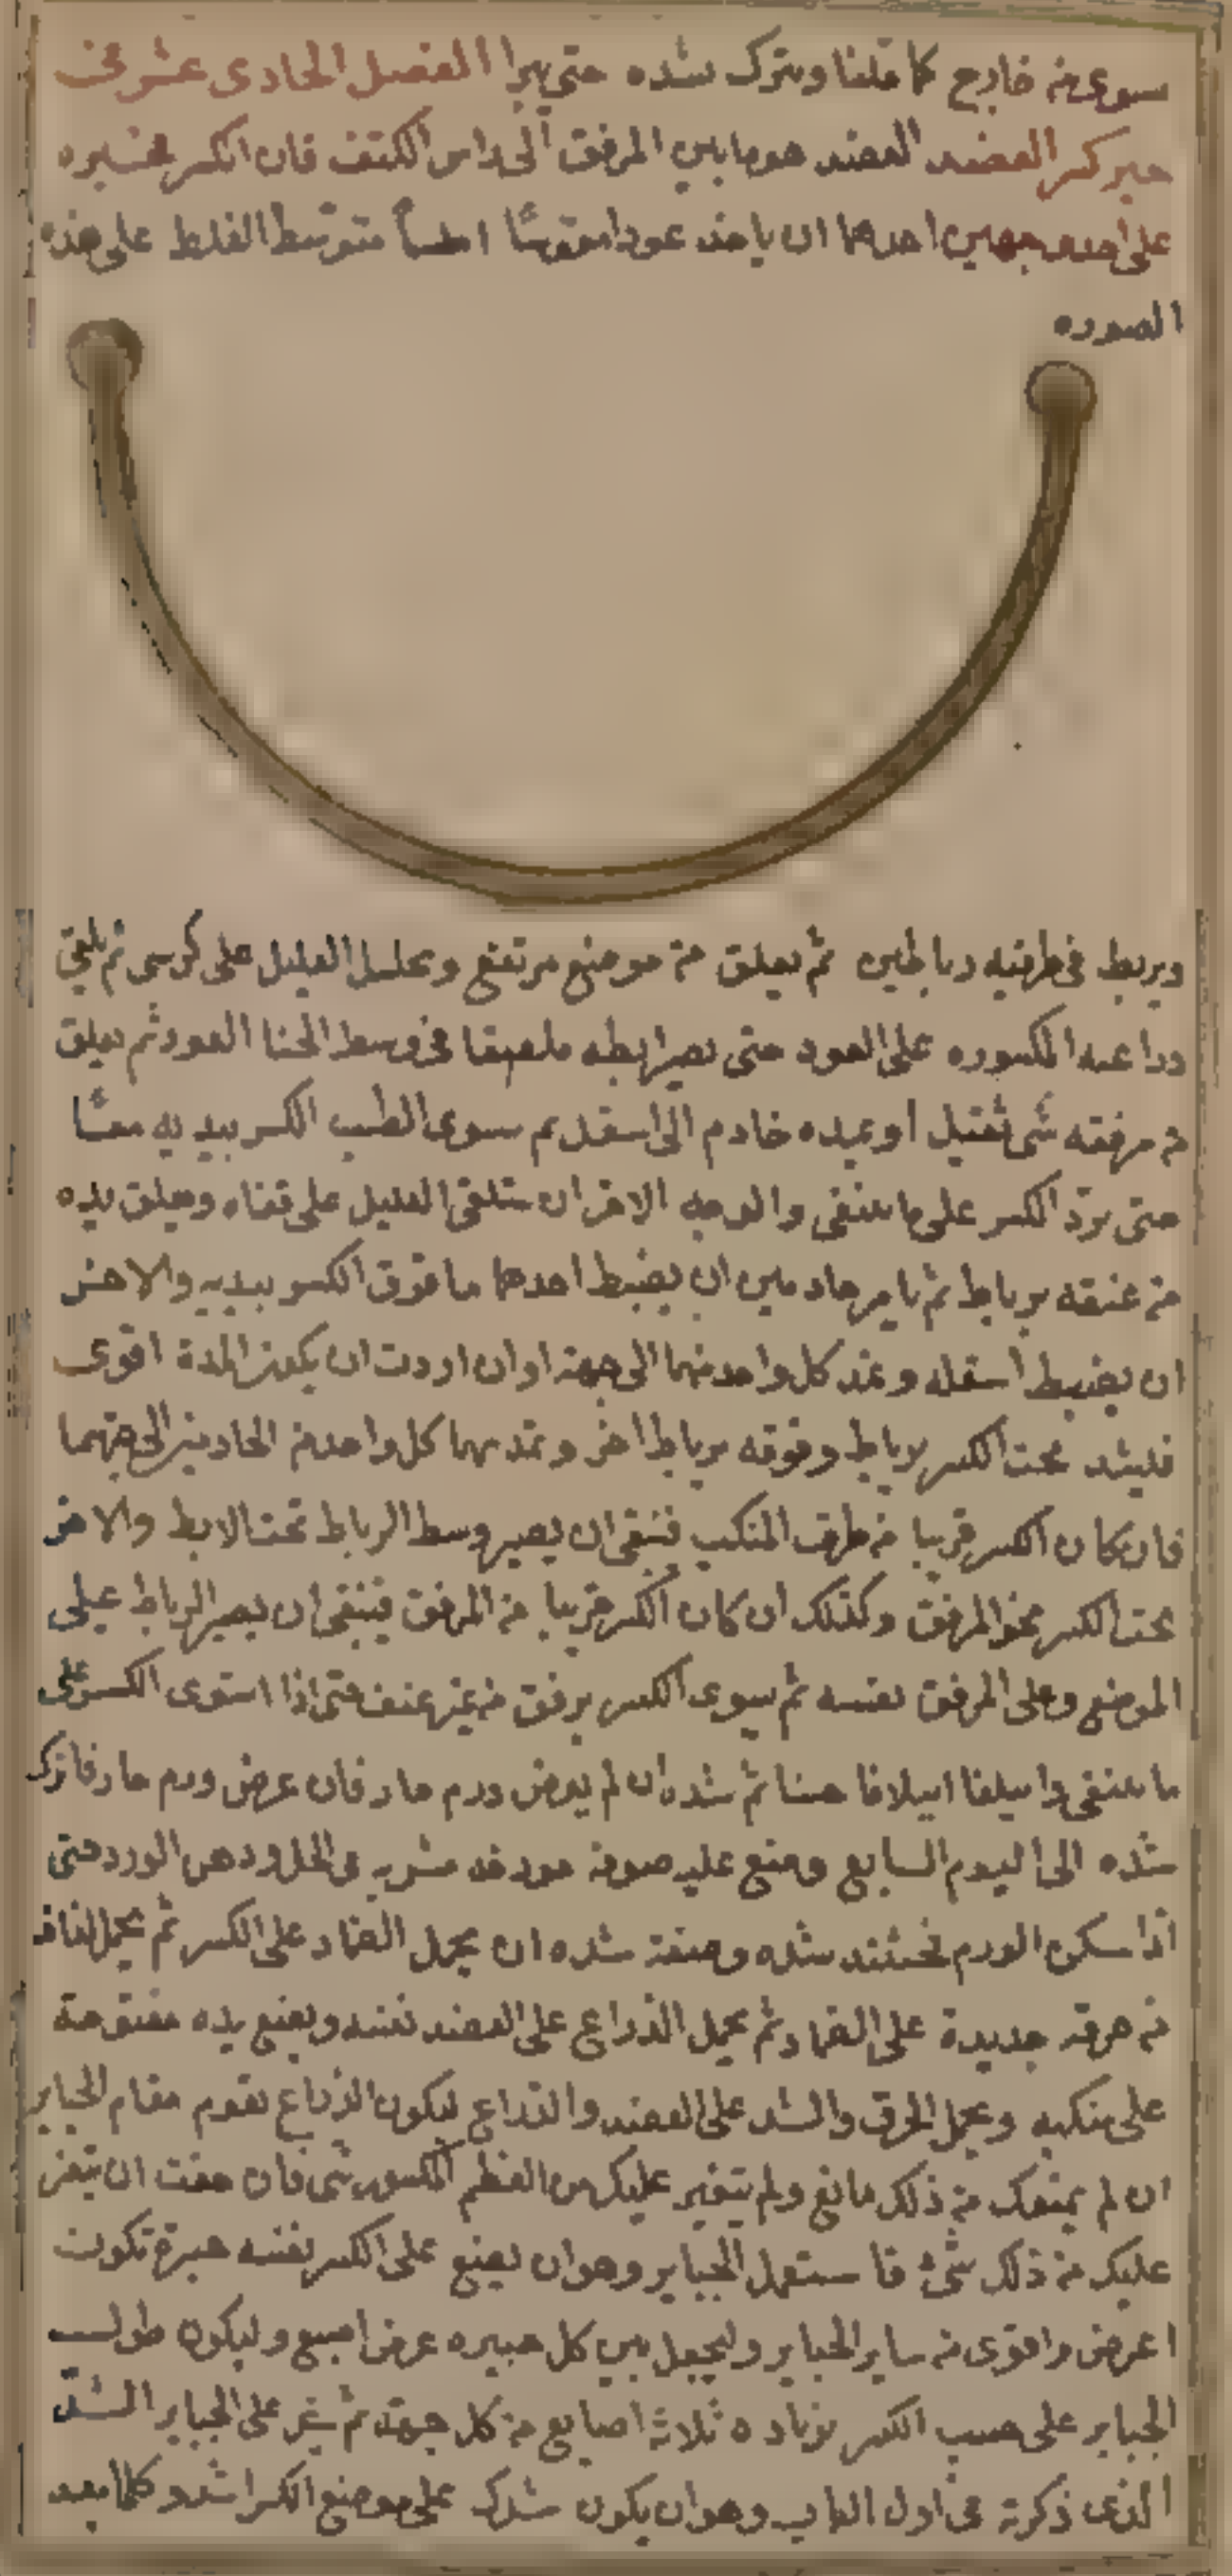 سوى من خارج كما قلنا ويترك شده حتى يبرا الفصل الحادى عشر فى
جبر كسر العضد العضد هو ما بين المرفق الى راس الكتف فان انكسر فجبره
على احد وجهين احدهما ان ياخذ عودا مقوسا املسا متوسط الغلظ على هذه
الصوره
ويربط فى طرفيه رباطين ثم يعلق من موضع مرتفع ويجلس العليل على كرسى ثم يلقى
ذراعه المكسوره على العود حتى يصير ابطه ملصقا فى وسط الحنا العود ثم يعلق
من مرفقه شى ثقيل او يمده خادم الى اسفل ثم يسوى الطبيب الكسر بيديه معا
حتى يرد الكسر على ما ينبغى والوجه الاخر ان يستلقى العليل على قفاه ويعلق يده
من عنقه برباط ثم يامر خادمين ان يضبط احدهما ما فوق الكسر بيديه والاخر
ان يضبط اسفله ويمد كل واحد منهما الى جهته او ان اردت ان يكون المدة اقوى
فليشد تحت الكسر برباط وفوقه برباط اخر ويمد بهما كل واحد من الخادمين الى جهتهما
فان كان الكسر قريبا من طرف المنكب فينبغى ان يصير وسط الرباط تحت الابط والاخر
تحت الكسر نحو المرفق وكذلك ان كان الكسر قريبا من المرفق فينبغى ان يصير الرباط على
الموضع وعلى المرفق نفسه ثم يسوى الكسر برفق من غير عنف حتى اذا استوى الكسر على
ما ينبغى وايتلفا ايتلافا حسنا ثم شده ان لم يعرض ورم حار فان عرض ورم حار فاترك
شده الى اليوم السابع وضع عليه صوفه مودعه مشربه فى الخل ودهن الورد حتى
اذا سكن الورم فحينئذ شده وصفة شده ان يحمل الضماد على الكسر ثم يحمل لفافه
من خرقه جديدة على الضماد ثم يحمل الذراع على العضد نفسه ويضع يده مفتوحة
على منكبه ويحمل الخرق والشد على العضد والذراع ليكون الذراع تقوم مقام الجباير
ان لم يمنعك من ذلك مانع ولم يتغير عليك من العظم المكسور شى فان خفت ان يتغير
عليك من ذلك شئ فاستعمل الجباير وهو ان يضع على الكسر نفسه جبيرة تكون
اعرض واقوى من ساير الجباير وليجعل بين كل جبيره عرض اصبع وليكون طول
الجباير على حسب الكسر بزياده ثلاثة اصابع من كل جهة ثم على الجباير الشد
الذى ذكرته فى اول الباب وهو ان يكون شدك على موضع الكسر اشد وكلما بعد